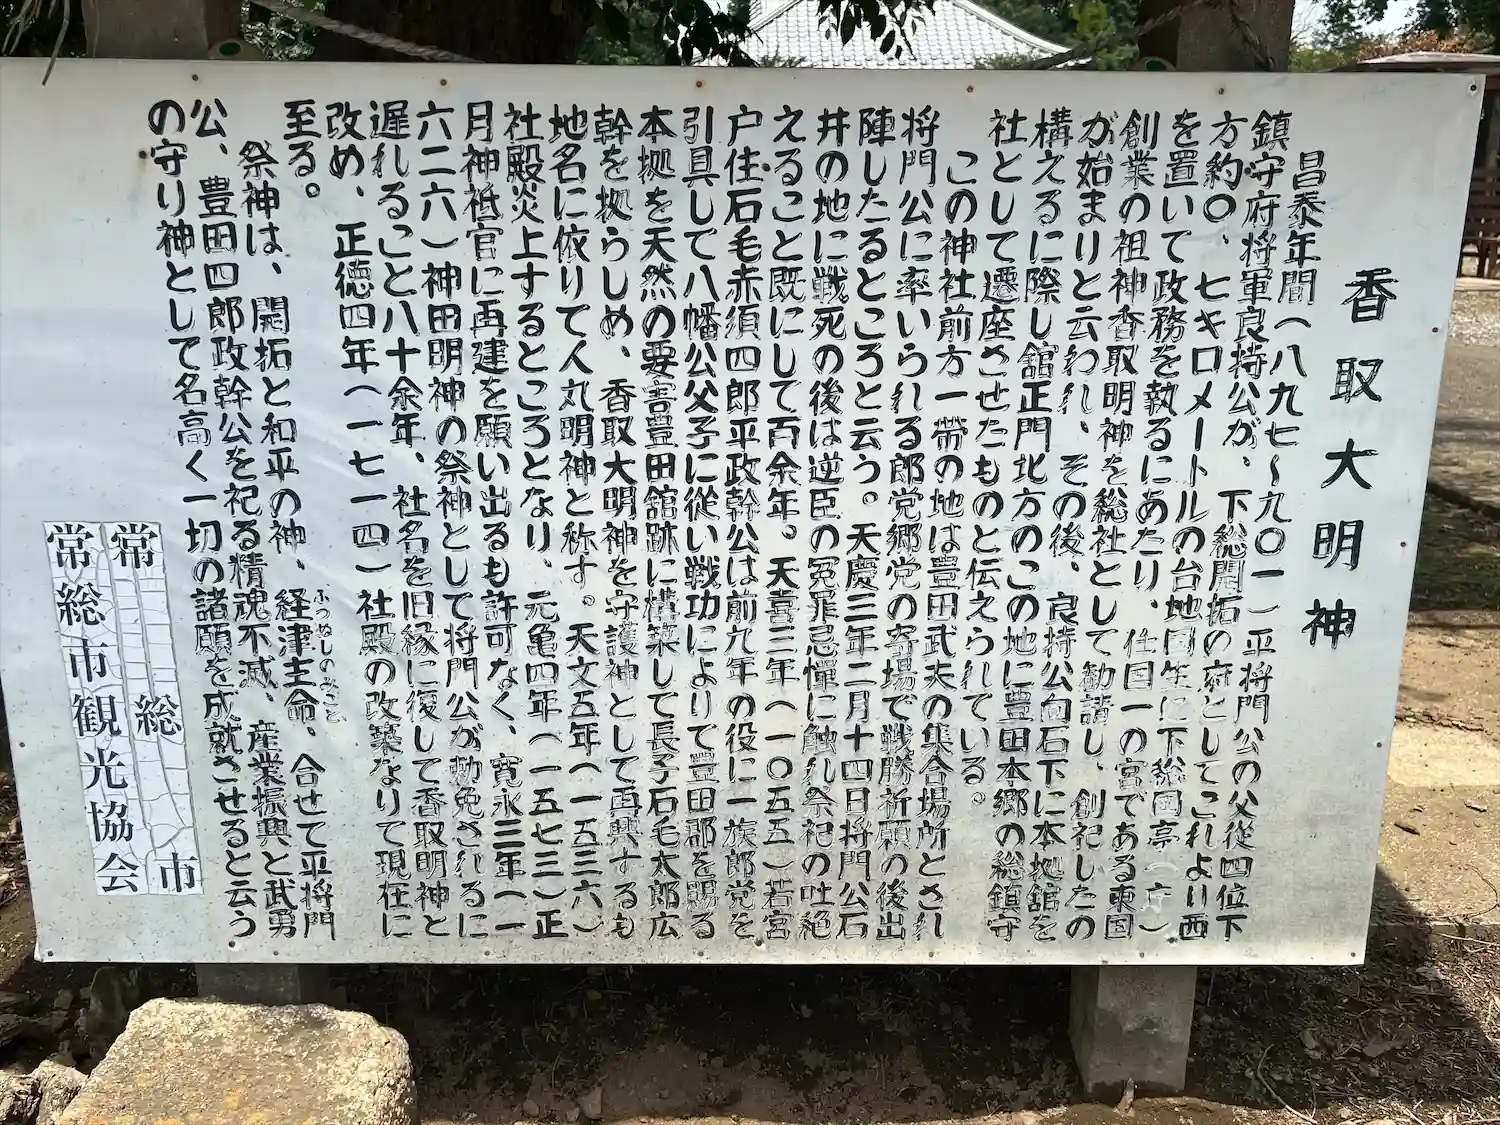 香取大明神
昌泰年間(八九七~九〇一)平将門公の父従四位下
鎮守府将軍良持公が、下総開拓の府としてこれより西
方約〇、七キロメートルの台地国生に下総国亭(庁)
を置いて政務を執るにあたり、任国一の宮である東国
創業の祖神香取明神を総社として勧請し、創祀したの
が始まりと云われ、その後、良持公向石下に本拠舘を
構えるに際し舘正門北方のこの地に豊田本郷の総鎮守
社として遷座させたものと伝えられている。
この神社前方一帯の地は豊田武夫の集合場所とされ
将門公に率いられる郎党郷党の寄場で戦勝祈願の後出
陣したるところと云う。天慶三年二月十四日将門公石
井の地に戦死の後は逆臣の冤罪忌憚に触れ祭祀の吐絶
えること既にして百余年。天喜三年(一〇五五)若宮
戸住石毛赤須四郎平政幹公は前九年の役に一族郎党を
引具して八幡公父子に従い戦功によりて豊田郡を賜る
本拠を天然の要害豊田舘跡に構築して長子石毛太郎広
幹を拠らしめ、香取大明神を守護神として再興するも
地名に依りて人丸明神と称す。天文五年(一五三六)
社殿炎上するところとなり、元亀四年(一五七三)正
月神祇官に再建を願い出るも許可なく、寛永三年(一
六二六)神田明神の祭神として将門公が勅免されるに
遅れること八十余年、社名を旧縁に復して香取明神と
改め、正徳四年(一七一四)社殿の改築なりて現在に
至る。
祭神は、開拓と和平の神、経津主命、合せて平将門
ふつぬしのみこと
公、豊田四郎政幹公を祀る精魂不滅、産業振興と武勇
の守り神として名高く一切の諸願を成就させると云う
常総市
常総市観光協会